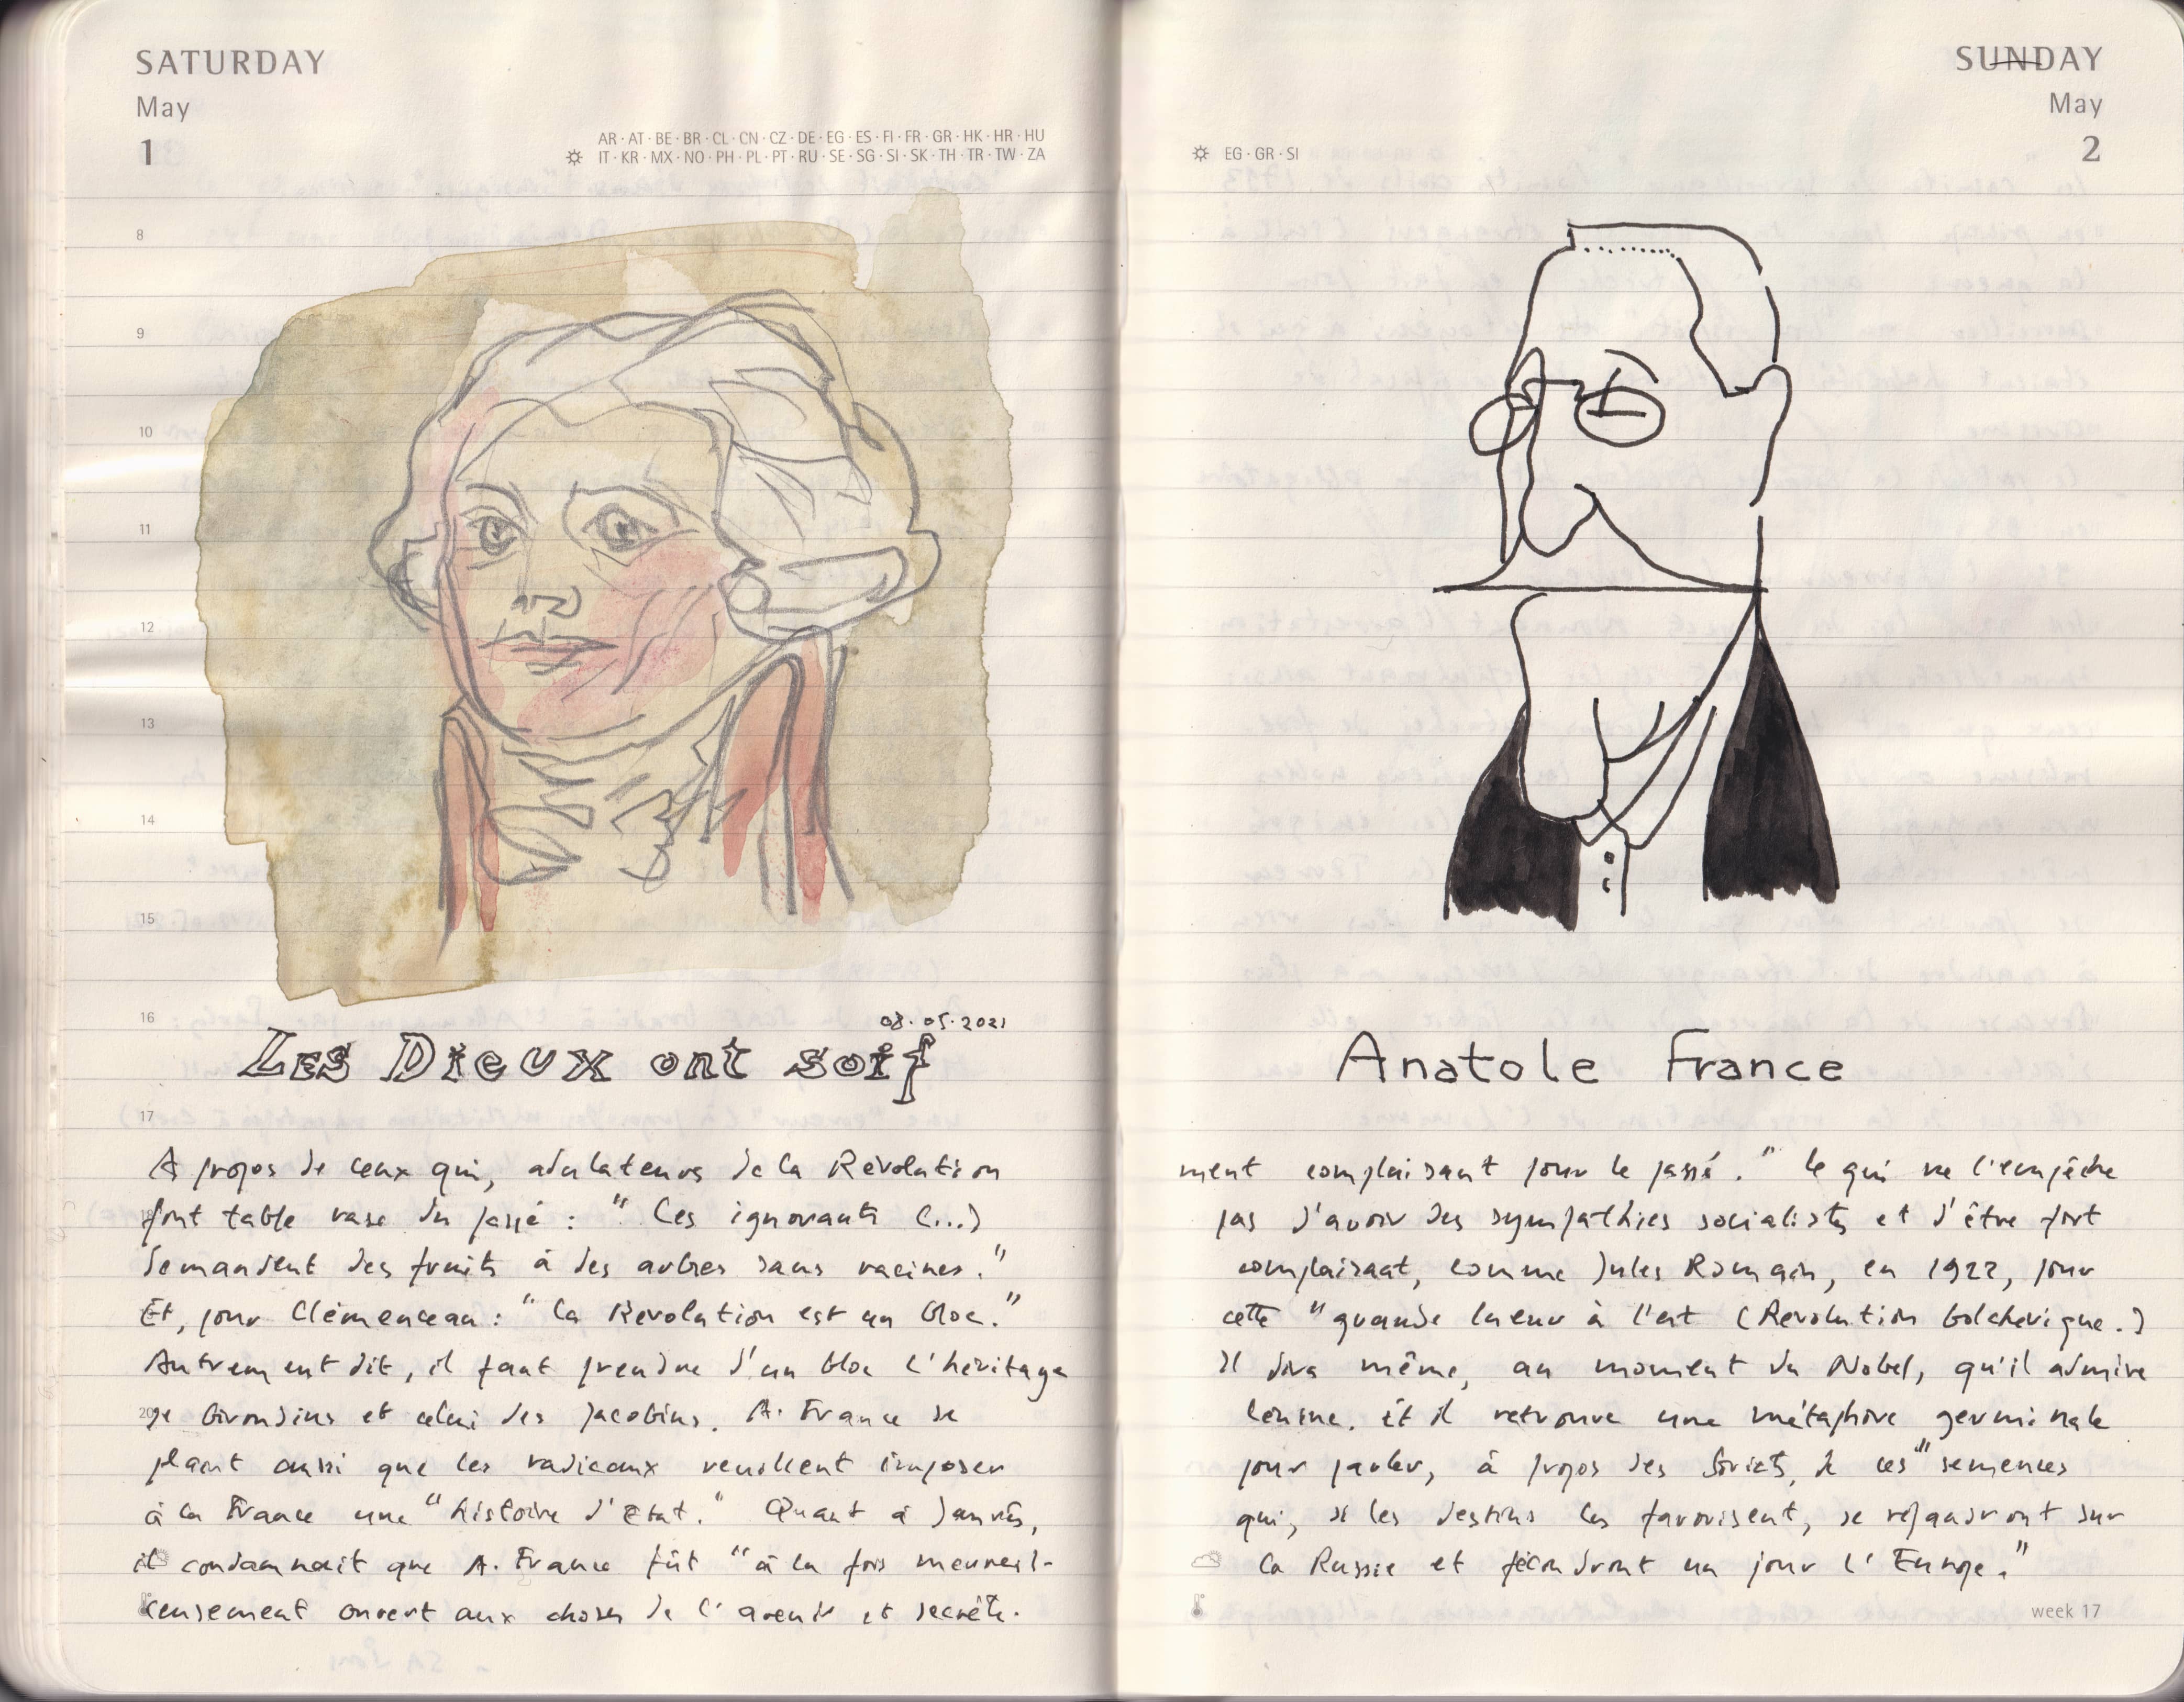 SATURDAY
May
1
AR · AT · BE · BR · CL · CN · CZ · DE · EG · ES · FI · FR · GR · HK · HR · HU
IT · KR · MX · NO · PH · PL · PT · RU · SE · SG · SI · SK · TH · TR · TW · ZA
8
9
10
11
12
13
14
15
16
08.05.2021
Les Dieux ont soif
17
A propos de ceux qui, adulateurs de la Révolution
18
font table rase du passé : " Ces ignorants (...)
demandent des fruits à des arbres sans racines."
Et, pour Clémenceau : " La Révolution est un bloc."
Autrement dit, il faut prendre d'un bloc l'héritage
20
de Girondins et celui des Jacobins. A. France se
plaint aussi que les radicaux veuillent imposer
à la France une "histoire d'Etat." Quant à Jaurès,
il condamnait que A. France fût "à la fois merveil-
leusement ouvert aux choses de l'avenir et secrète-
SUNDAY
May
2
EG · GR · SI
Anatole France
ment complaisant pour le passé." Ce qui ne l'empêche
pas d'avoir des sympathies socialistes et d'être fort
complaisant, comme Jules Romain, en 1922, pour
cette "grande lueur à l'est (Révolution bolchévique.)
Il dira même, au moment du Nobel, qu'il admire
Lénine. Et il retrouve une métaphore germinale
pour parler, à propos des Soviets, de ces "semences
qui, si les destins les favorisent, se répandront sur
la Russie et féconderont un jour l'Europe."
week 17